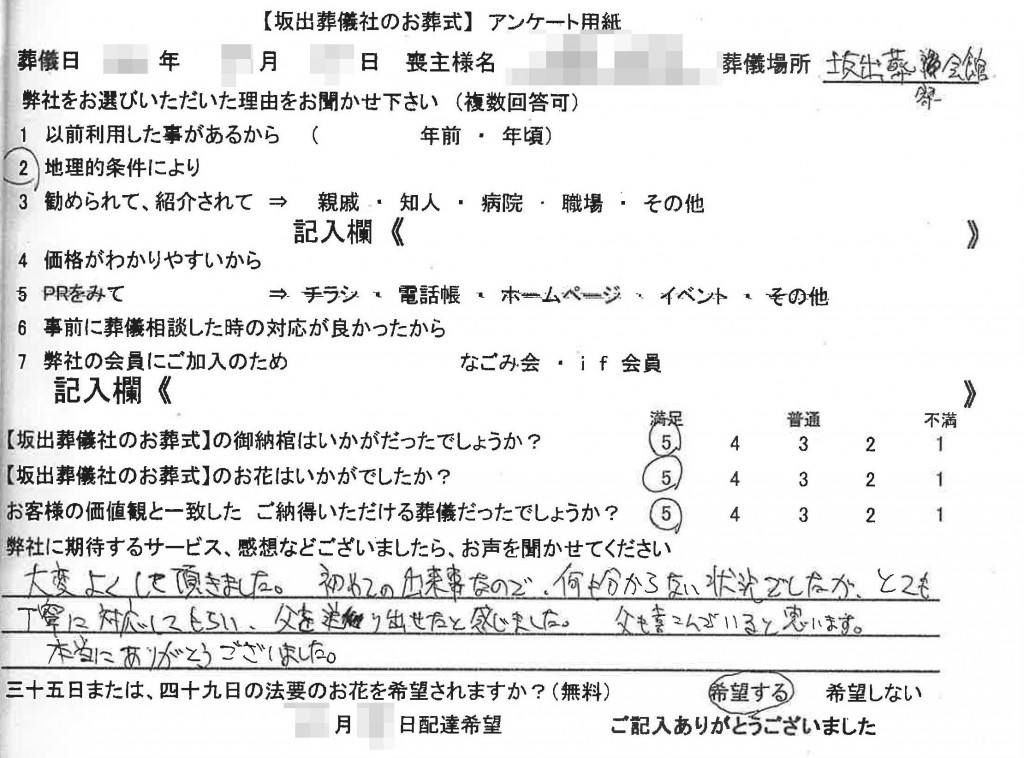 【坂出葬儀社のお葬式】 アンケート用紙
葬儀日 年 月 日 喪主様名 葬儀場所 坂出葬儀会館
弊社をお選びいただいた理由をお聞かせ下さい (複数回答可)
1 以前利用した事があるから ( 年前 ・ 年頃)
2 地理的条件により
3 勧められて、紹介されて ⇒ 親戚 ・ 知人 ・ 病院 ・ 職場 ・ その他
記入欄《 》
4 価格がわかりやすいから
5 PRをみて ⇒ チラシ ・ 電話帳 ・ ホームページ ・ イベント ・ その他
6 事前に葬儀相談した時の対応が良かったから
7 弊社の会員にご加入のため なごみ会 ・ if 会員
記入欄《 》
満足 普通 不満
【坂出葬儀社のお葬式】の御納棺はいかがだったでしょうか? 5 4 3 2 1
【坂出葬儀社のお葬式】のお花はいかがでしたか? 5 4 3 2 1
お客様の価値観と一致した ご納得いただける葬儀だったでしょうか? 5 4 3 2 1
弊社に期待するサービス、感想などございましたら、お声を聞かせてください
大変よくして頂きました。 初めての出来事なので、何も分からない状況でしたが、とても
丁寧に対応してもらい、父を送り出せたと感じました。 父も喜こんでいると思います。
本当にありがとうございました。
三十五日または、四十九日の法要のお花を希望されますか?(無料) 希望する 希望しない
月 日配達希望 ご記入ありがとうございました